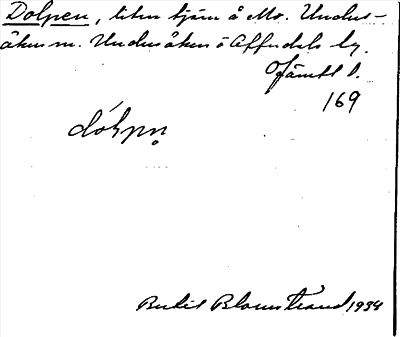 Dolpen, liten tjärn å Mo. Unders-
åkers sn. Undersåkers i Offerdals by.
Jämtl l.
169
dólpn̥
Berit Blomstrand 1934